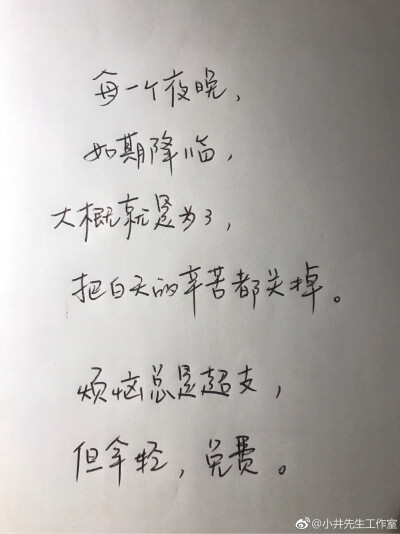 每一个夜晚，
如期降临，
大概就是为了，
把白天的辛苦都关掉。
烦恼总是超支，
但拿轻，免费。
@小井先生工作室